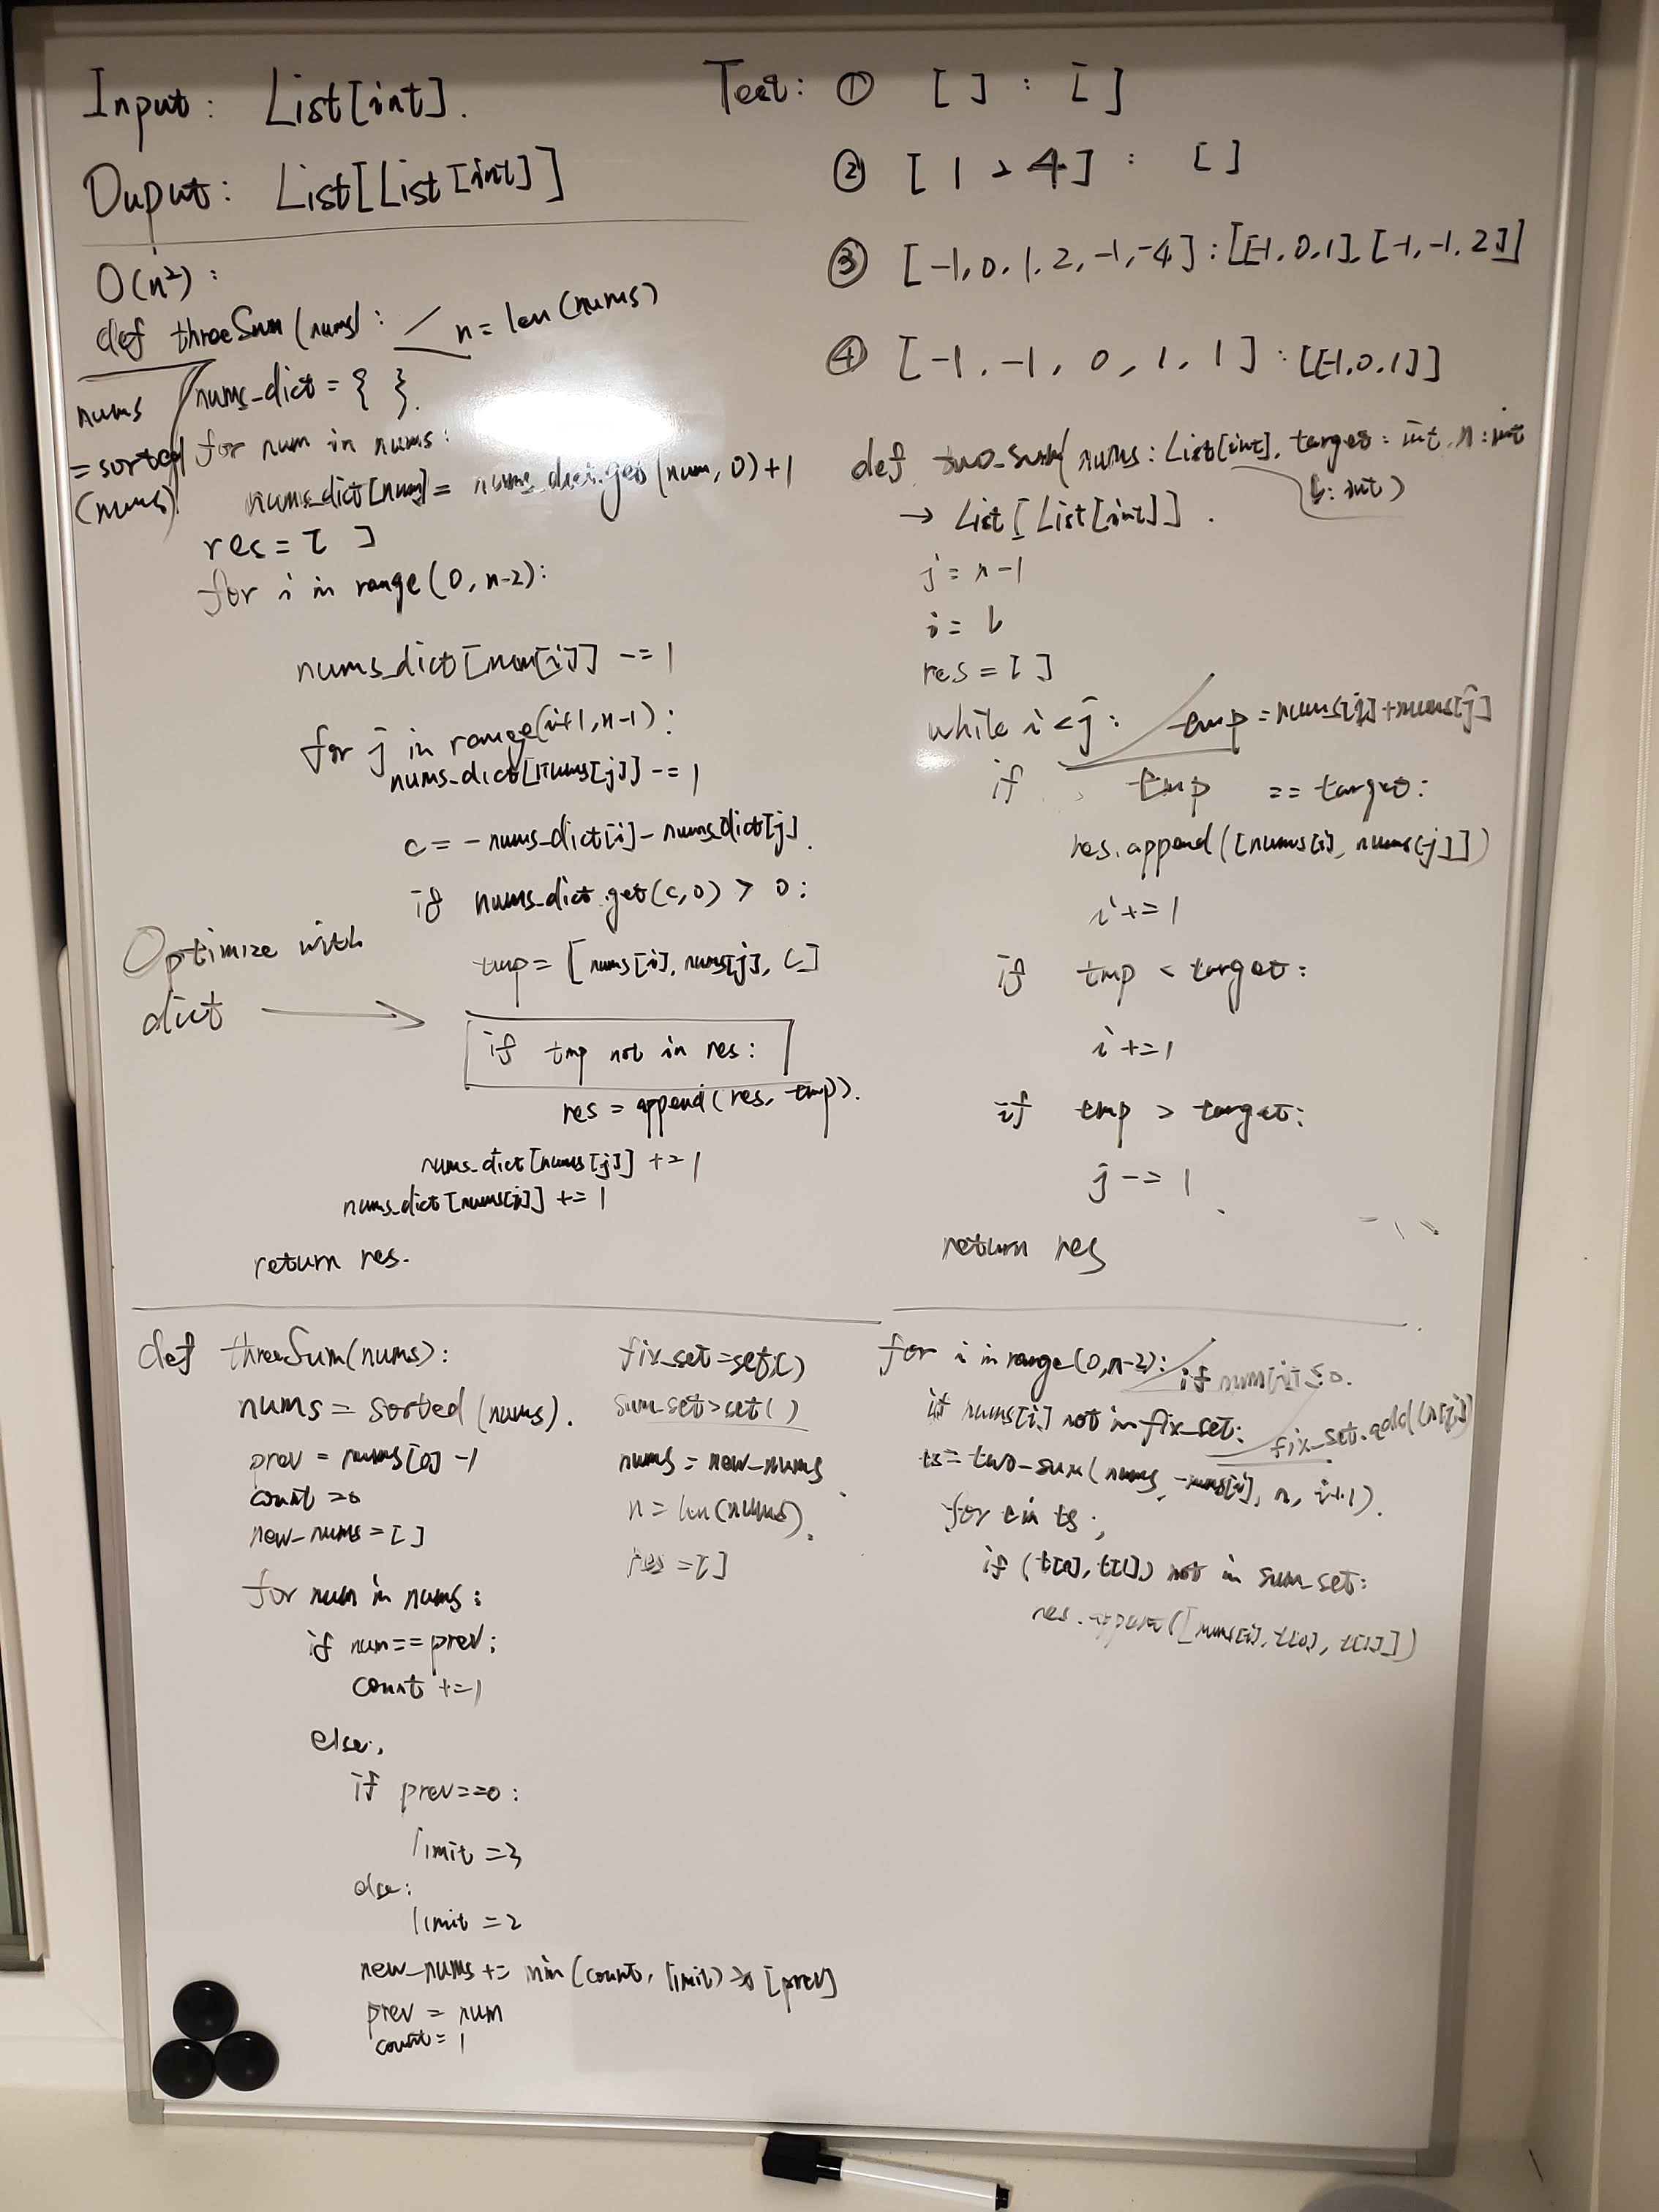 Input: List[int].
Ouput: List[List[int]]
O(n²):
def threeSum(nums): n = len(nums)
nums = sorted (nums)
nums_dict = { }.
for num in nums:
nums_dict[num] = nums_dict.get(num, 0)+1
res = [ ]
for i in range(0, n-2):
nums_dict[num[i]] -= 1
for j in range(i+1, n-1):
nums_dict[nums[j]] -= 1
c = - nums_dict[i] - nums_dict[j].
if nums_dict.get(c, 0) > 0:
tmp = [nums[i], nums[j], c]
Optimize with
dict
if tmp not in res:
res = append(res, tmp).
nums_dict[nums[j]] += 1
nums_dict[nums[i]] += 1
return res.
Test: ① [ ] : [ ]
② [ 1 > 4 ] : [ ]
③ [-1, 0, 1, 2, -1, -4] : [[-1, 0, 1], [-1, -1, 2]]
④ [-1, -1, 0, 1, 1] : [[-1, 0, 1]]
def two_sum(nums: List[int], target: int, n: int
b: int)
→ List[List[int]].
j = n-1
i = b
res = [ ]
while i < j: tmp = nums[i]+nums[j]
if tmp == target:
res.append([nums[i], nums[j]])
i += 1
if tmp < target:
i += 1
if tmp > target:
j -= 1
return res
def threeSum(nums):
nums = sorted (nums).
prev = nums[0] -1
count = 0
new_nums = [ ]
for num in nums:
if num == prev:
count += 1
else:
if prev == 0:
limit = 3
else:
limit = 2
new_nums += min(count, limit) * [prev]
prev = num
count = 1
fix_set = set()
sum_set = set()
nums = new_nums
n = len(nums).
res = [ ]
for i in range(0, n-2): if num[i] ≤ 0.
if nums[i] not in fix_set: fix_set.add(n[i])
ts = two-sum(nums, -nums[i], n, i+1).
for t in ts:
if (t[0], t[1]) not in sum_set:
res.append([nums[i], t[0], t[1]])